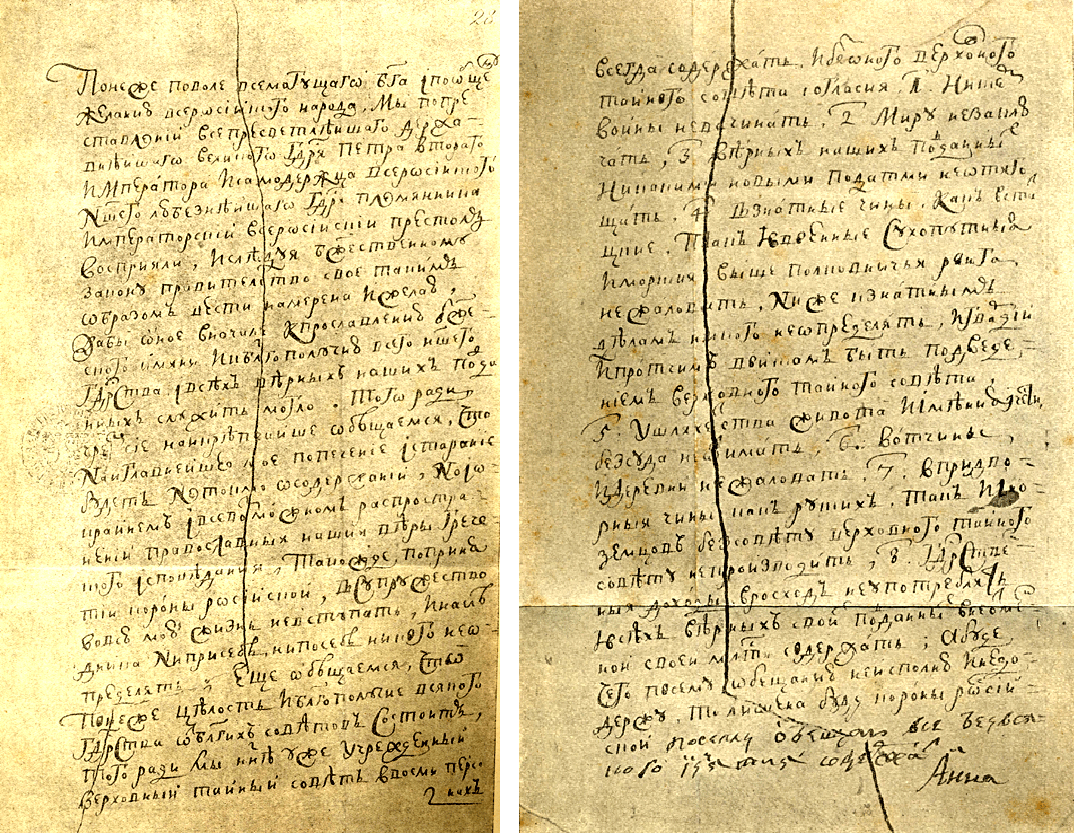 28
Понеже поволе всемогущаго бга іпообще
желанию всеросіиского народа, Мы попре
ставлении всепресветлѣишаго держа-
внѣишаго великого Гдря Петра втораго
Императора Исамодержца всеросіиского
Ншего любезнѣишаго Гдря племянника
Императорскій всеросіискіи престолъ
восприяли, Ислѣдуя бжественному
закону правителство свое такимъ
образомъ вести намерена Ижелаю,
дабы оное вначале кпрославлению бже-
ского имяни Икблгополучию всего ншего
Гдрства івсѣхъ вѣрныхъ нашихъ подда
нныхъ служить могло. Того ради,
чрезсие наикрѣпчаише обещаемся, что
Наиглавнеишее мое попечение істарание
будетъ Нетокмо осодержании, Но іо
крайнемъ івсевозможномъ распростра-
нении православныя нашия вѣры Грече-
ского ісповѣдания, Такожде, поприня
тіи короны росіиской, всупружество
вовсю мою жизнь невступать, Инаслѣ
дника Ниприсебѣ, нипосебѣ никого нео-
пределять, Еще обещаемся, что
Понеже цѣлость Иблгополучие всякого
Гдрства отблгихъ совѣтовъ Состоитъ,
того ради Мы ннѣ уже учрежденный
верховный тайный совѣтъ ввосми персо
нахъ
всегда содержать, Ибезоного верховного
тайного совѣта согласия, 1. Нискем
войны невсчинать, 2 Миру незаклю
чать, 3 вѣрныхъ нашихъ подданных
Никакими новыми податми неотяго
щать. 4 взнатные чины, какъ встат
цкие, Такъ Ввоенные Сухопутныя
Иморския выше полковничья ранга
нежаловать, Ниже кзнатнымъ
дѣламъ никого неопределять, Игвардии
Ипротчимъ войскамъ быть подведе-
ниемъ верховного тайного совѣта,
5. Ушляхетства живота Иімѣния Ічести,
безсуда неотимать, 6. вотчины,
Идеревни нежаловать, 7, впридво-
рныя чины какъ руских, такъ Ино-
земцовъ безсовѣту верховного тайного
совѣту непроизводить, 8 Гдрстве-
ныя доходы вросходъ неупотреблять
Ивсѣхъ вѣрныхъ своих подданных внеотмѣ-
ной своеи млсти содержать, Абуде
чего посему обещанию неисполню Инедо-
держу, то лишена буду короны росіи-
ской По сему обещаю все безвся-
кого изятия содержать
Анна